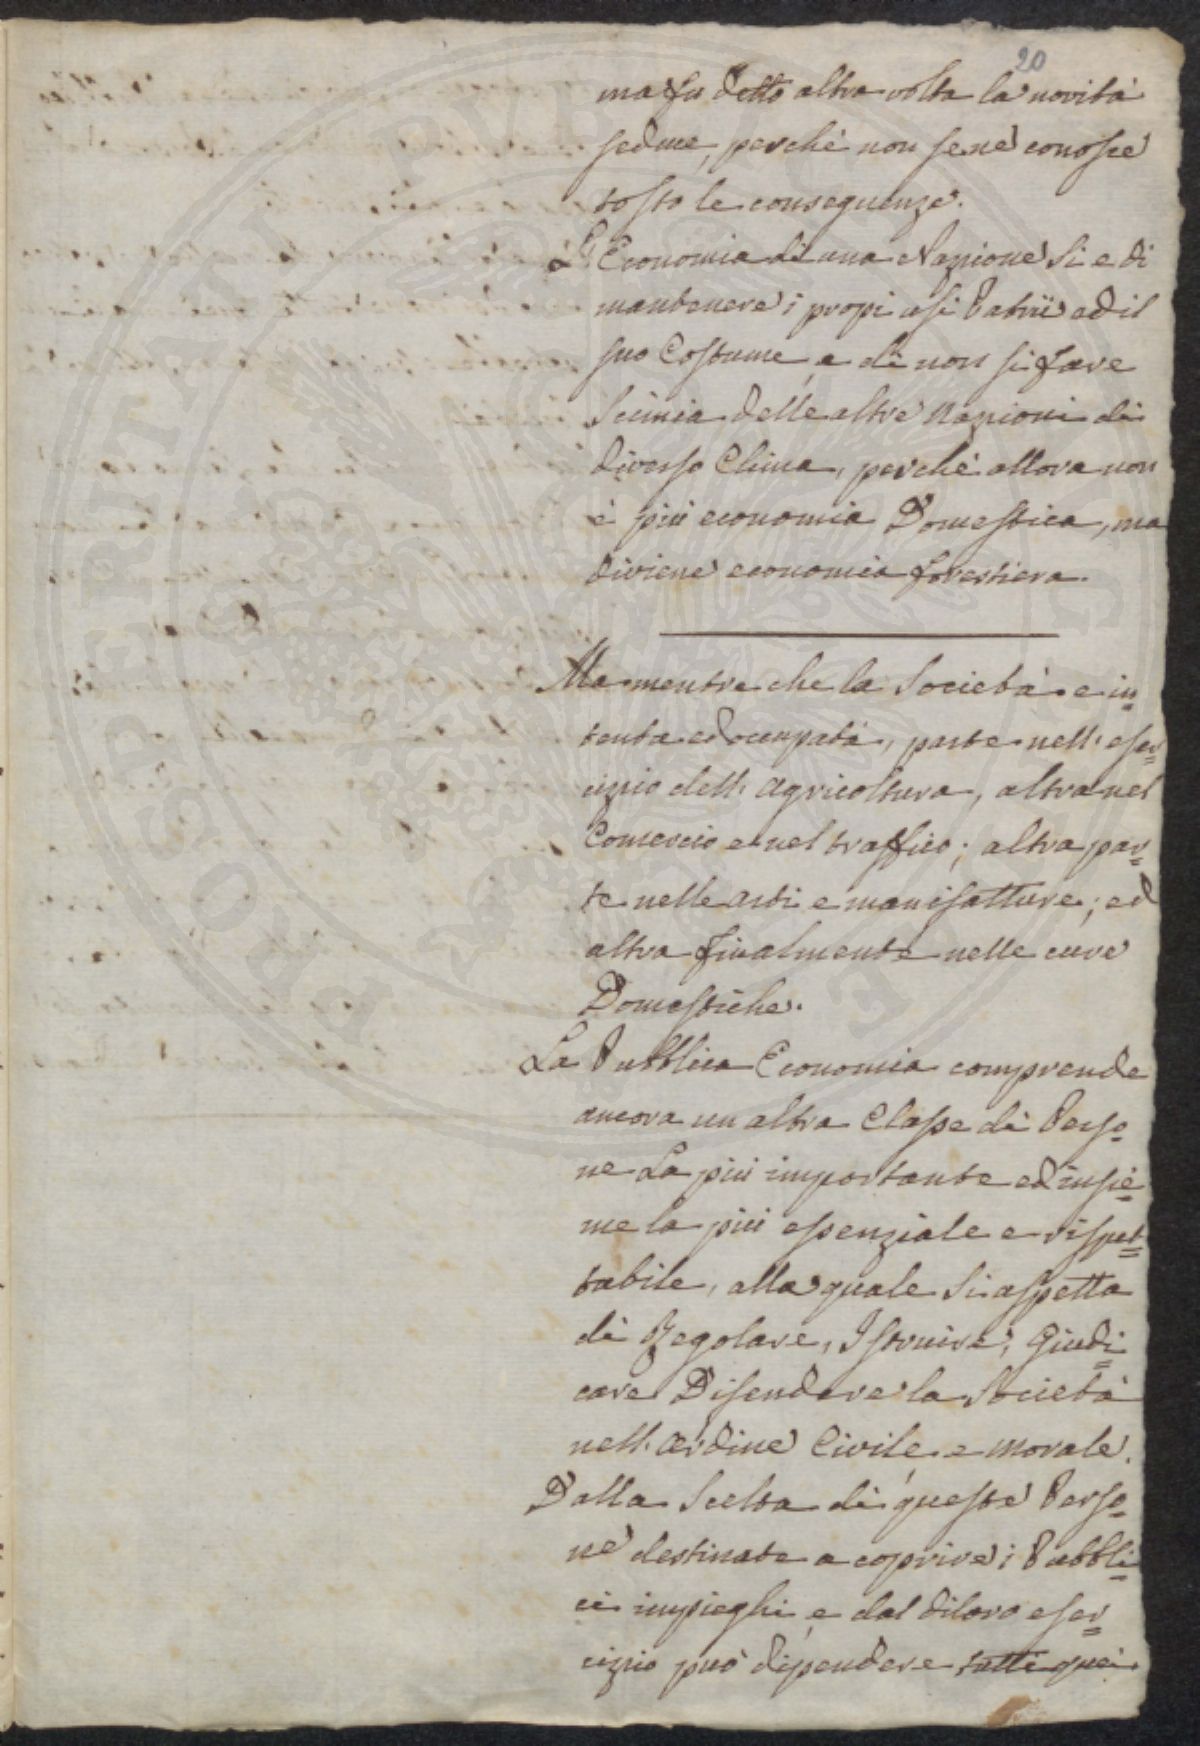 20
ma fu detto altra volta la novità
seduce, perchè non se ne conosce
tosto le conseguenze.
L'Economia di una Nazione si e di
mantenere i propi usi Patrii ed il
suo Costume, e di non si fare
Scimia delle altre Nazioni di
diverso Clima, perchè allora non
è più economia Domestica, ma
diviene economia forestiera.
Ma mentre che la Società e in=
tenta ed ocupata, parte nell' eser=
cizio dell' Agricoltura, altra nel
Comercio e nel traffico; altra par=
te nelle Arti e manifatture; ed
altra finalmente nelle cure
Domestiche.
La Pubblica Economia comprende
ancora un altra Classe di Perso=
ne La più importante ed insie=
me la più essenziale e rispet=
tabile, alla quale si aspetta
di Regolare, Istruire, Giudi=
care Difendere la Società
nell' Ordine Civile e Morale.
Dalla Scelta di queste Perso=
ne destinate a coprire i Pubbli=
ci impieghi, e dal di loro eser=
cizio può dipendere tutti quei
PROSPERITATI PUBLICAE